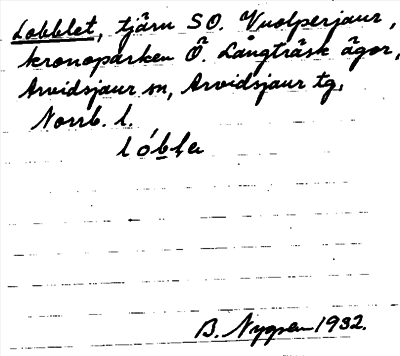 Lobblet, tjärn SO. Vuolperjaur,
kronoparken Ö. Långträsk ägor,
Arvidsjaur sn, Arvidsjaur tg,
Norrb. l.
lóbḷa
B. Nygren 1932.